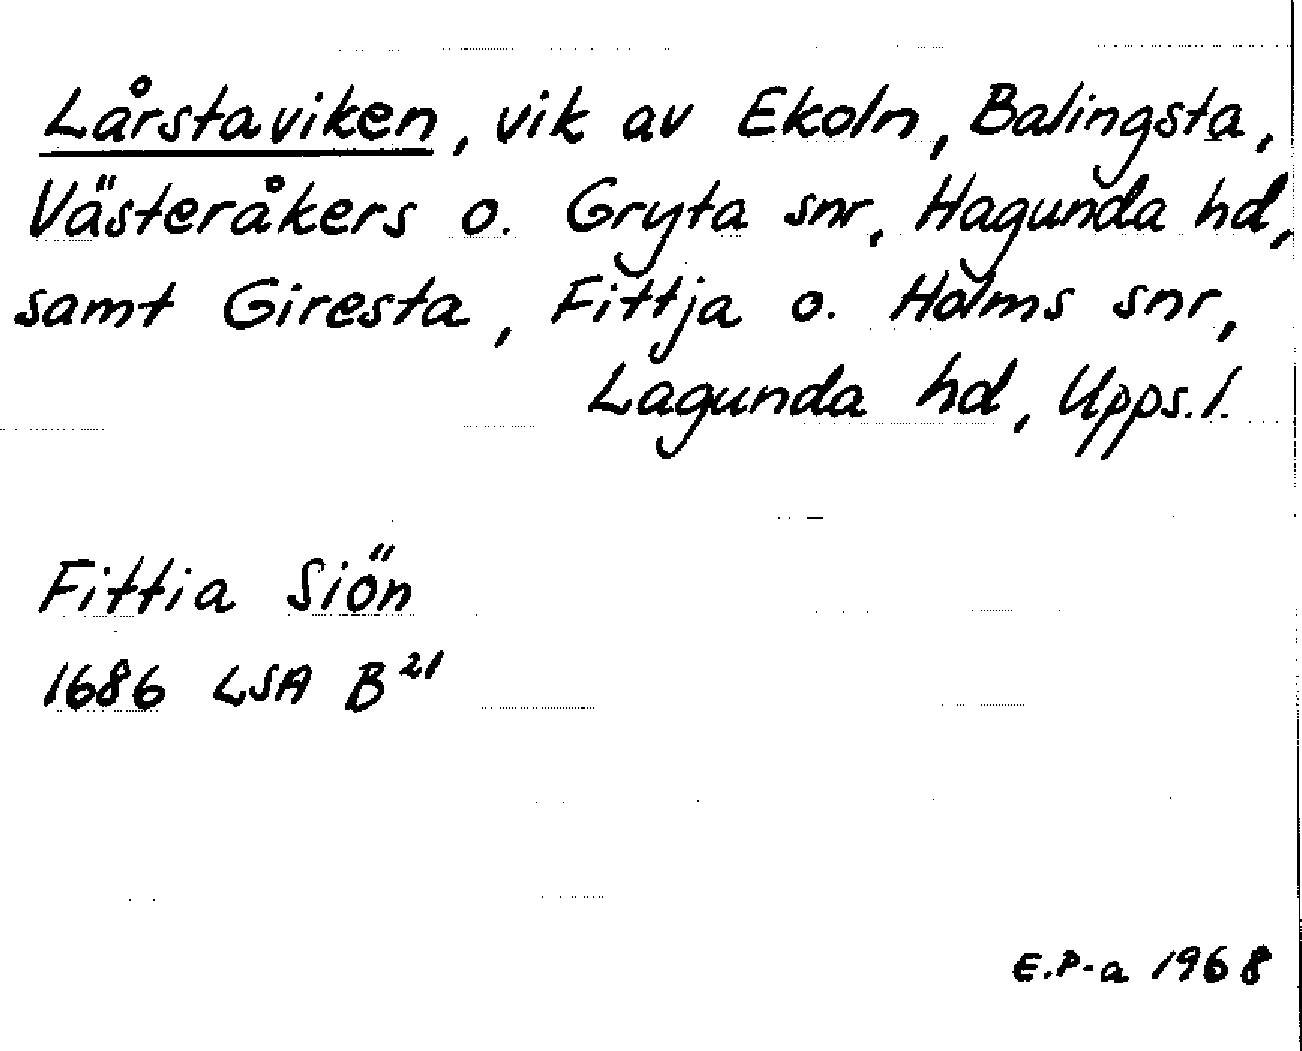 Lårstaviken, vik av Ekoln, Balingsta,
Västeråkers o. Gryta snr, Hagunda hd,
samt Giresta, Fittja o. Holms snr,
Lagunda hd, Upps. l.
Fittia Siön
1686 LSA B²¹
E.P-a 1968